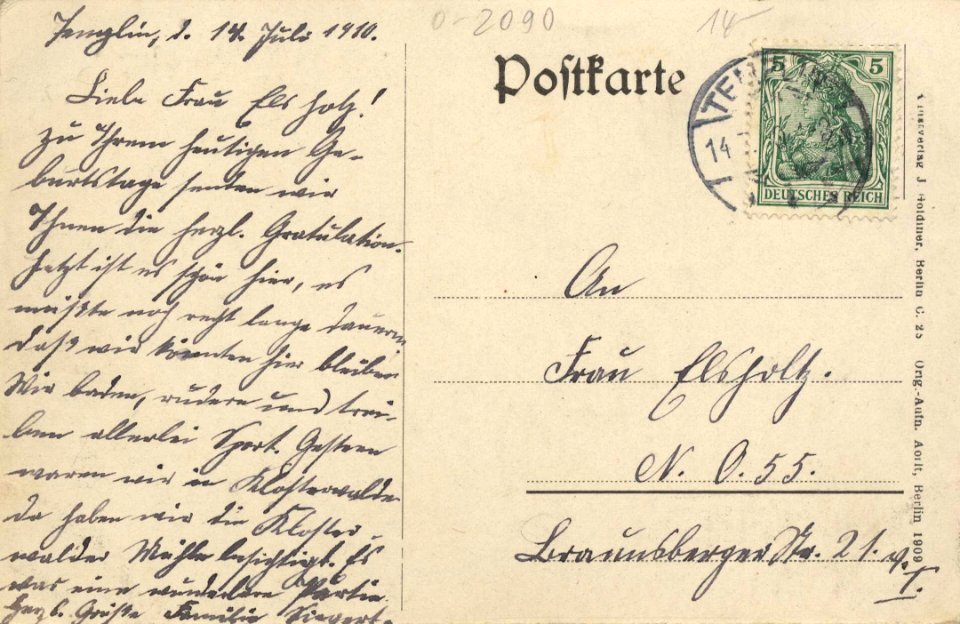 Templin, d. 14. Juli 1910.
Liebe Frau Elsholtz!
zu Ihrem heutigen Ge-
burtstage senden wir
Ihnen die herzl. Gratulation.
Jetzt ist es schön hier, es
müßte noch recht lange dauern
daß wir könnten hier bleiben
Wir baden, rudern und trei-
ben allerlei Sport. Gestern
waren wir in Klosterwalde
da haben wir die Kloster-
walder Mühle besichtigt. Es
was eine wunderbare Partie.
Herzl. Grüße Familie Siegert.
0-2090
14
Postkarte
TEMPLIN
14
5 5
DEUTSCHES REICH
An
Frau Elsholtz.
N. O. 55.
Braunsberger Str. 21. v.
I.
Kunstverlag J. Goldiner, Berlin C. 25 Orig.-Aufn. Berlin 1909